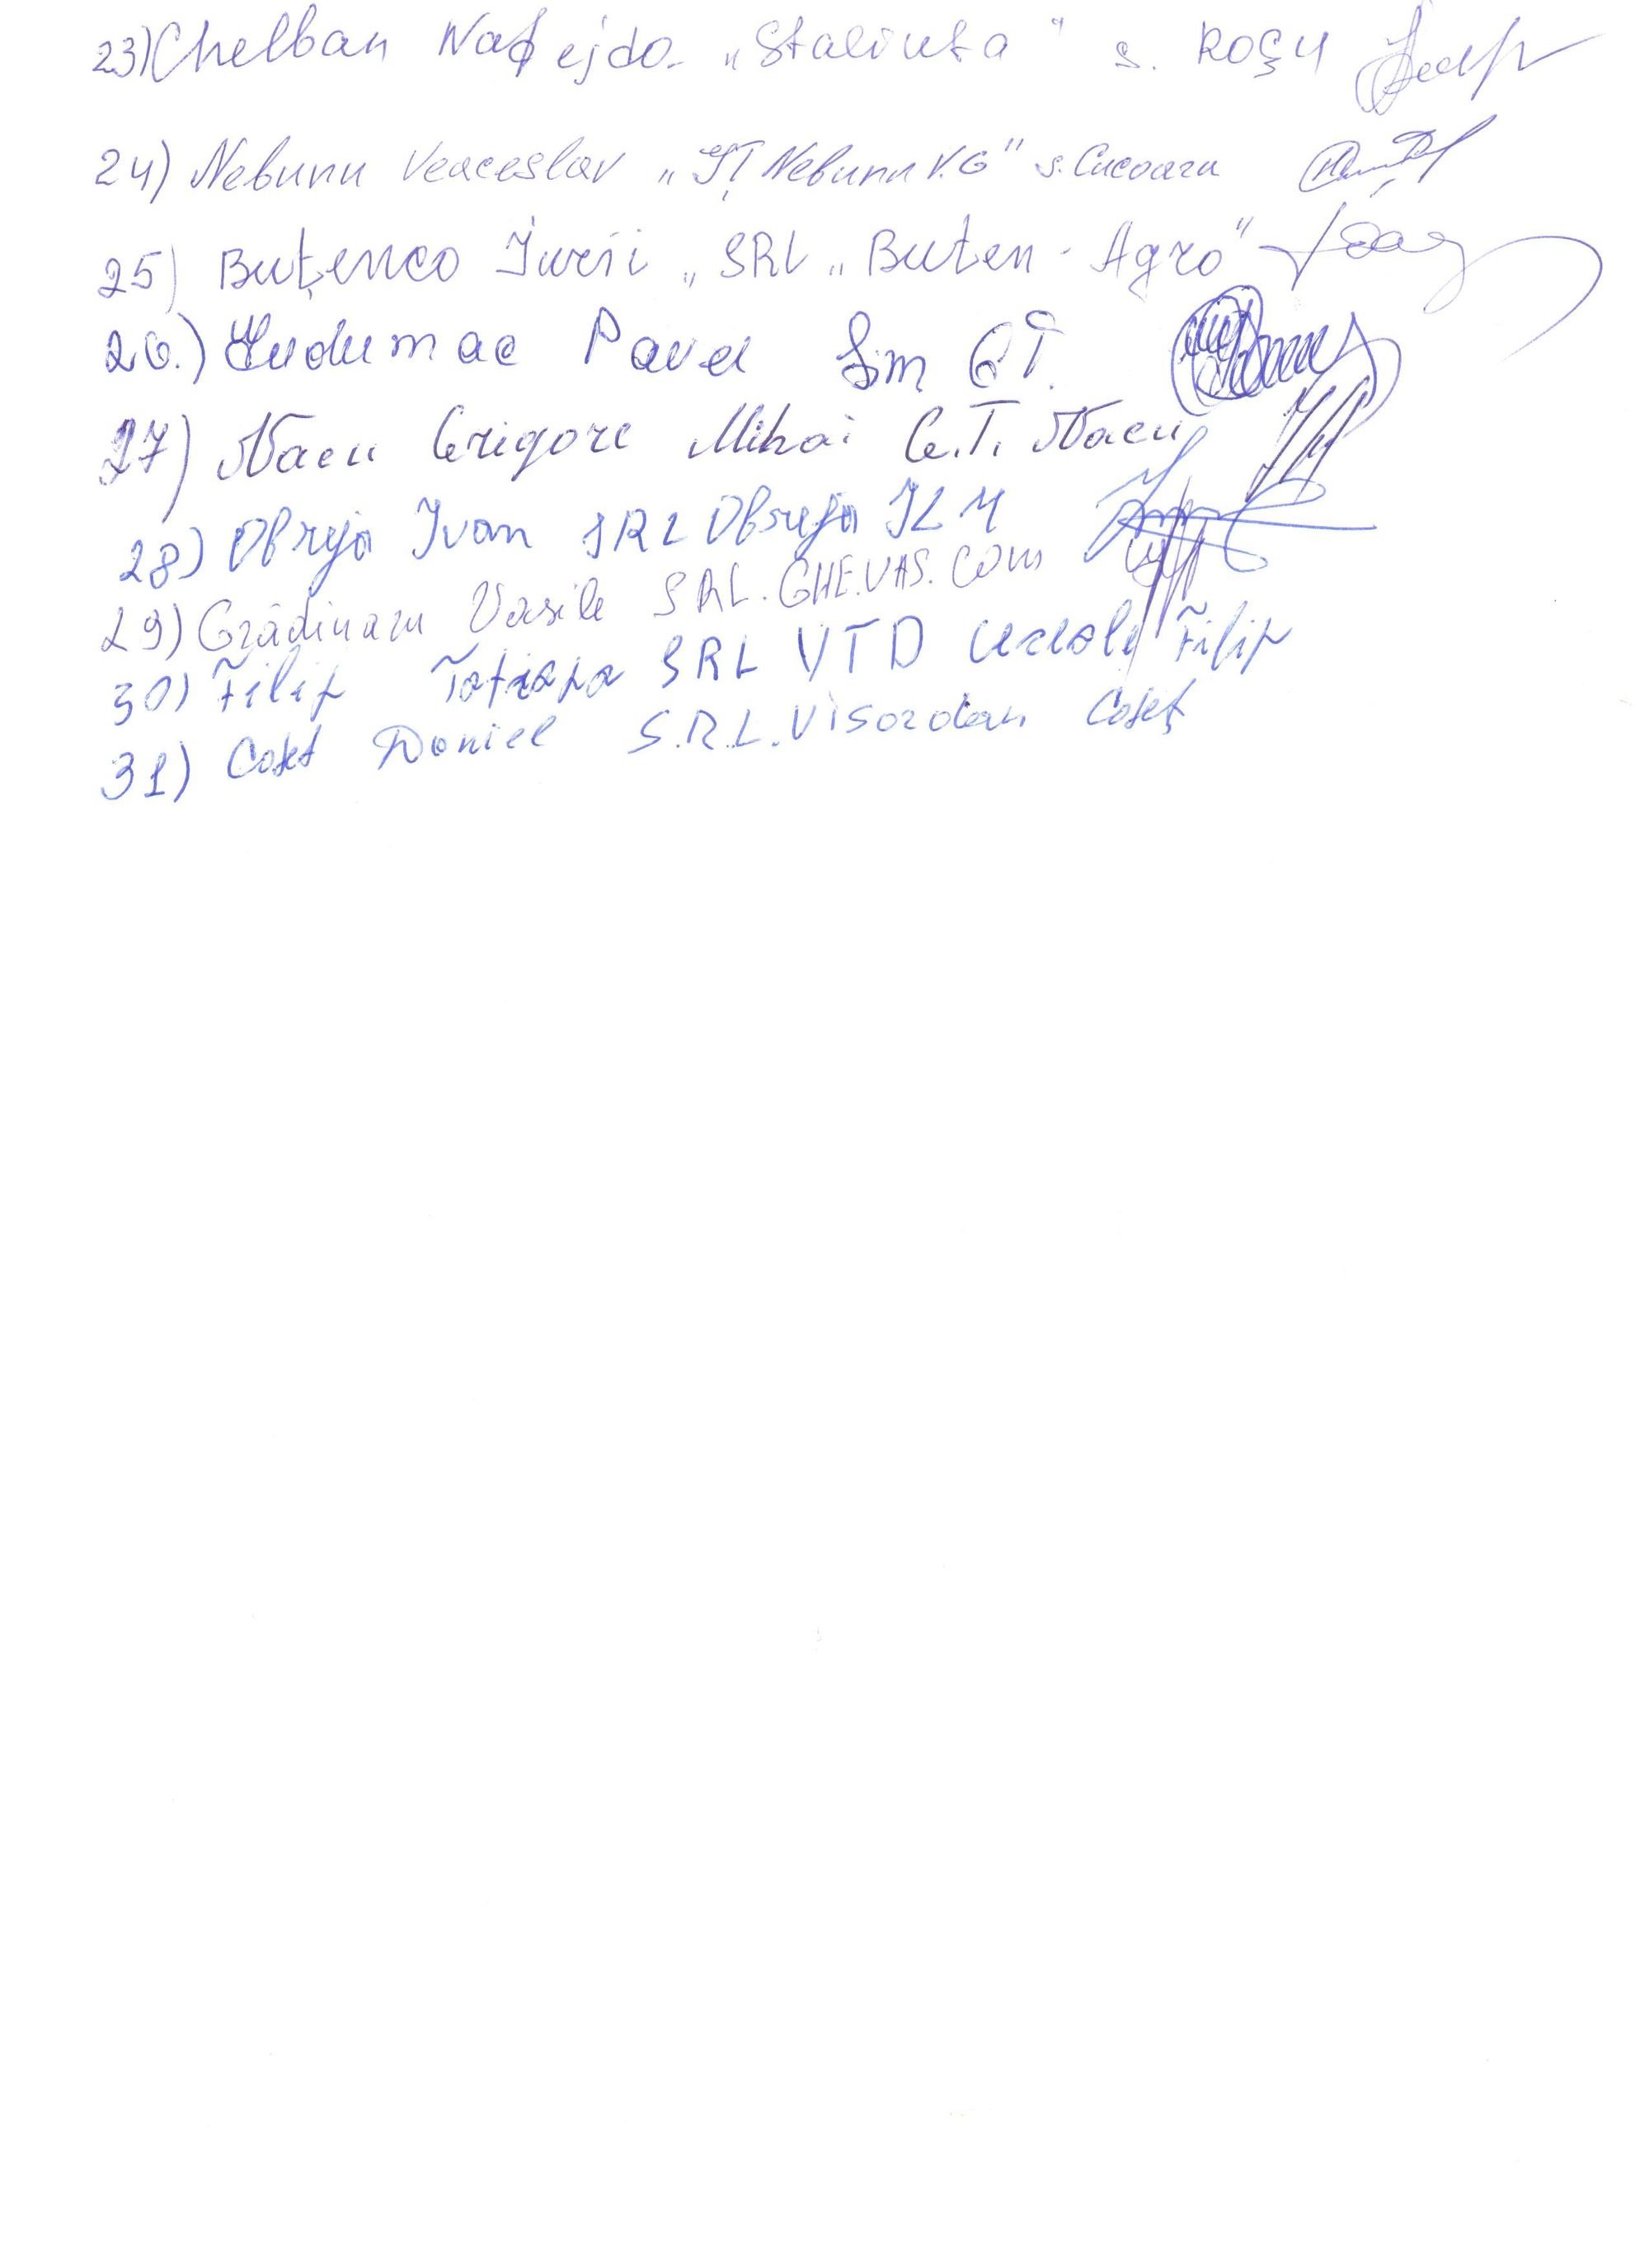 23) Chelban Nadejda „Stalinta" s. Roşu
24) Nebunu Veaceslav „ÎT Nebunu V.G" s. Cucoara
25) Buţenco Iurii „SRL „Buten-Agro"
26.) Pavel GŢ.
27) Nacu Grigore Mihai G.T. Nacu
28) Obreja Ivan SRL Obreja ILM
29) Grădinaru Vasile SRL. GHE.VAS.COM
30) Filip Tatiana SRL VTD Filip
31) Coset Daniel S.R.L. Visordan Coseţ